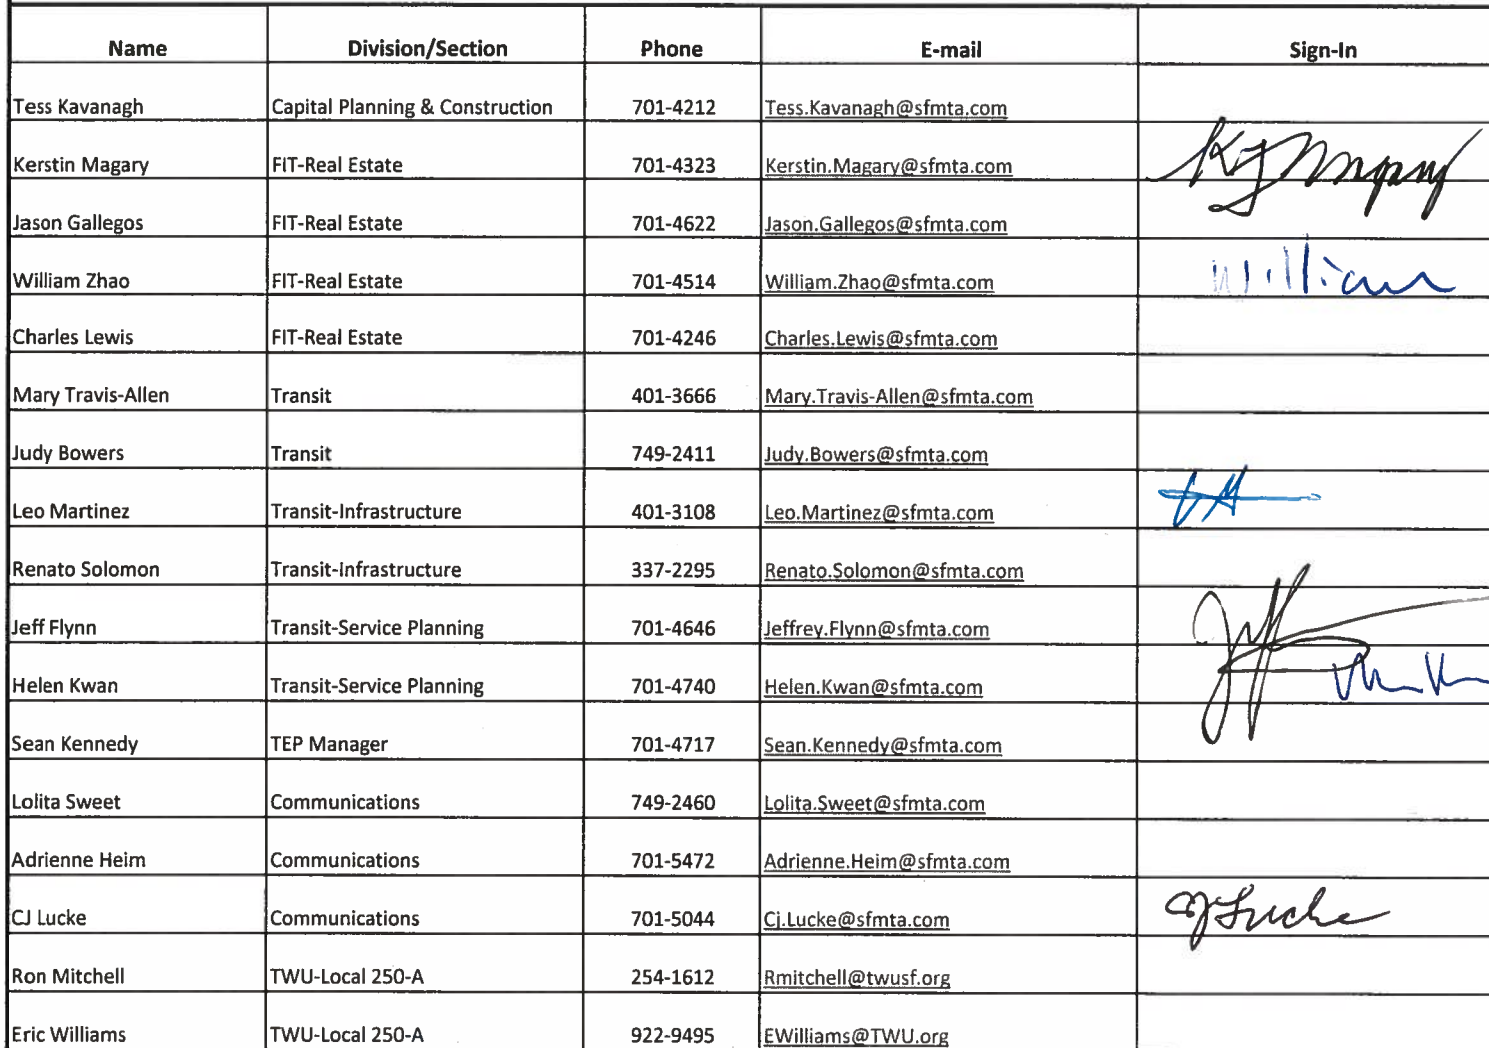 Name Division/Section Phone E-mail Sign-In
Tess Kavanagh Capital Planning & Construction 701-4212 Tess.Kavanagh@sfmta.com
Kerstin Magary FIT-Real Estate 701-4323 Kerstin.Magary@sfmta.com KJ Magary
Jason Gallegos FIT-Real Estate 701-4622 Jason.Gallegos@sfmta.com
William Zhao FIT-Real Estate 701-4514 William.Zhao@sfmta.com William
Charles Lewis FIT-Real Estate 701-4246 Charles.Lewis@sfmta.com
Mary Travis-Allen Transit 401-3666 Mary.Travis-Allen@sfmta.com
Judy Bowers Transit 749-2411 Judy.Bowers@sfmta.com
Leo Martinez Transit-Infrastructure 401-3108 Leo.Martinez@sfmta.com
Renato Solomon Transit-Infrastructure 337-2295 Renato.Solomon@sfmta.com
Jeff Flynn Transit-Service Planning 701-4646 Jeffrey.Flynn@sfmta.com
Helen Kwan Transit-Service Planning 701-4740 Helen.Kwan@sfmta.com
Sean Kennedy TEP Manager 701-4717 Sean.Kennedy@sfmta.com
Lolita Sweet Communications 749-2460 Lolita.Sweet@sfmta.com
Adrienne Heim Communications 701-5472 Adrienne.Heim@sfmta.com
CJ Lucke Communications 701-5044 Cj.Lucke@sfmta.com CJ Lucke
Ron Mitchell TWU-Local 250-A 254-1612 Rmitchell@twusf.org
Eric Williams TWU-Local 250-A 922-9495 EWilliams@TWU.org